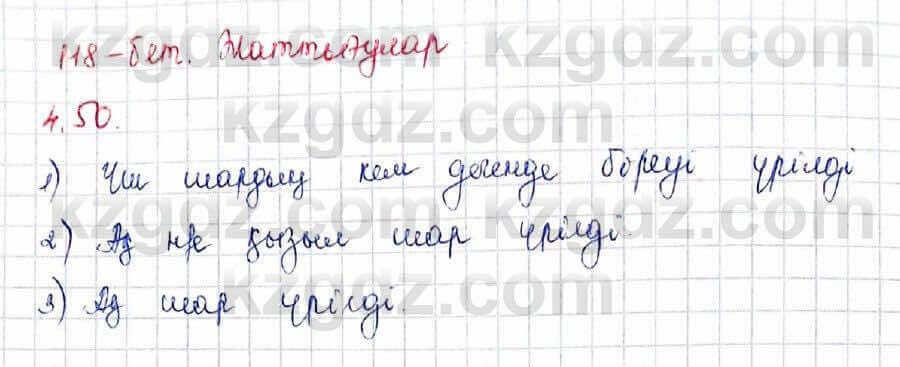 118-бет. Жаттығулар
4.50.
1) Үш шардың кем дегенде біреуі үрілді
2) Ақ не қызыл шар үрілді.
3) Ақ шар үрілді.
kzgdz.com